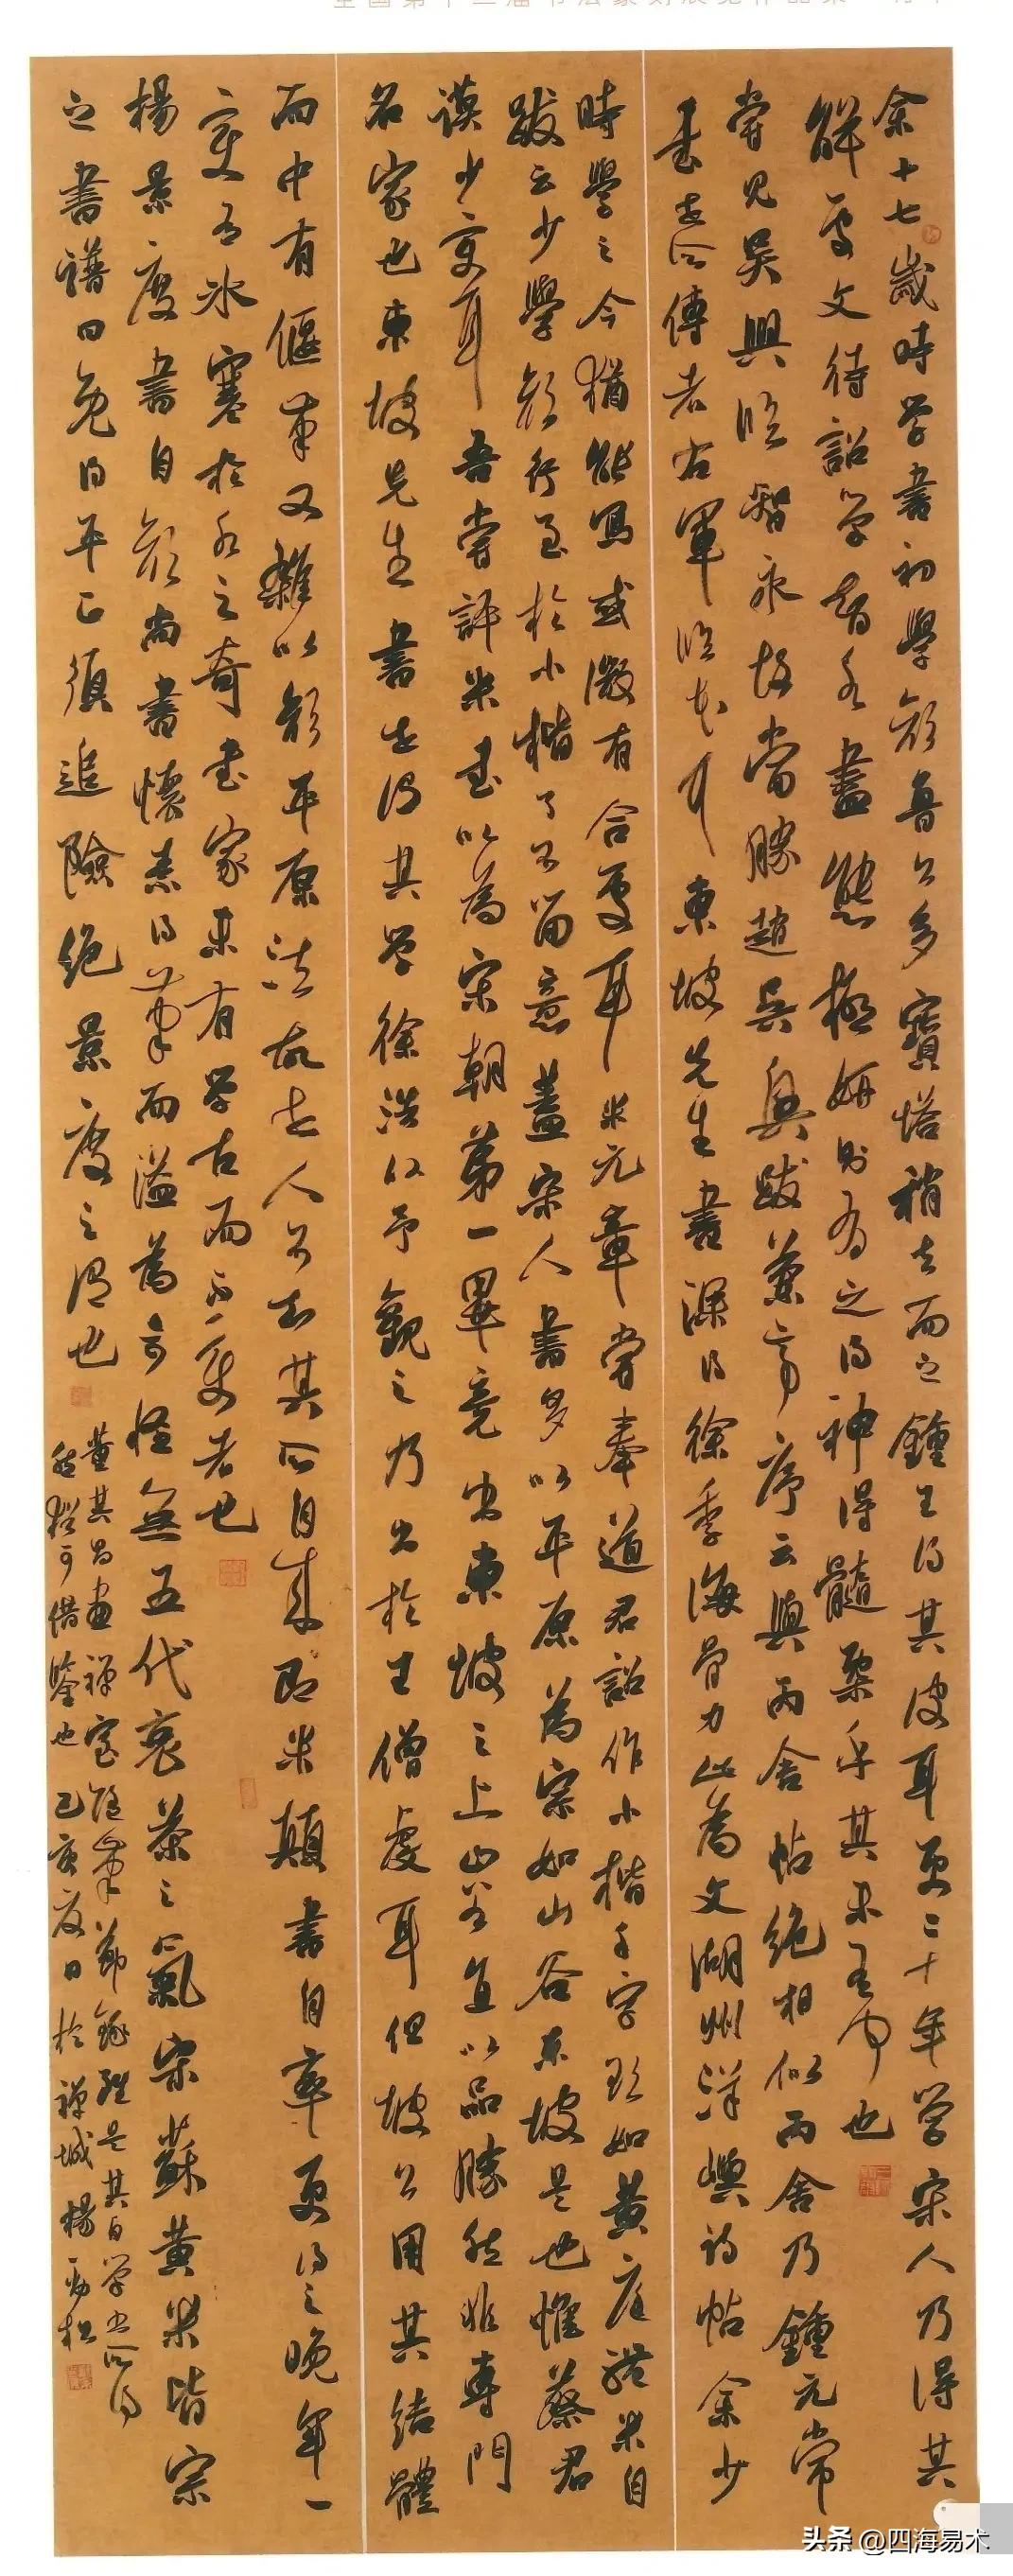 余十七歲時学書初學顏魯公多寶塔稍去而之鍾王得其皮耳更二十年学宋人乃得其
解處文待詔学智永盡態極妍則有之得神得髓槩乎其未有聞也
嘗見吳興臨智永故當勝趙吳興跋蘭亭序云與丙舍帖絕相似丙舍乃鍾元常
書世所傳者右軍臨本耳東坡先生書深得徐季海骨力此為文湖州洋嶼詩帖余少
時學之今猶能寫或微有合處耳米元章嘗奉道君詔作小楷千字欲如黃庭體米自
跋云少學顏行至於小楷了不留意蓋宋人書多以平原為宗如山谷東坡是也惟蔡君
謨少變耳吾嘗評米書以為宋朝第一畢竟出東坡之上山谷直以品勝然非專門
名家也東坡先生書世謂其学徐浩以予觀之乃出於王僧虔耳但坡公用其結體
而中有偃筆又雜以顏平原法故世人不知其所自來即米顛書自率更得之晚年一
變有冰寒於水之奇書家未有学古而不變者也
楊景度書自顏尚書懷素得筆而溢為奇怪無五代衰苶之氣宋蘇黃米皆宗
之書譜曰既得平正須追險絕景度之謂也
董其昌畫禪室隨筆節錄雖是其自学書所得
然猶可借鑒也己亥夏日於禪城楊勁松
头条 @四海易术